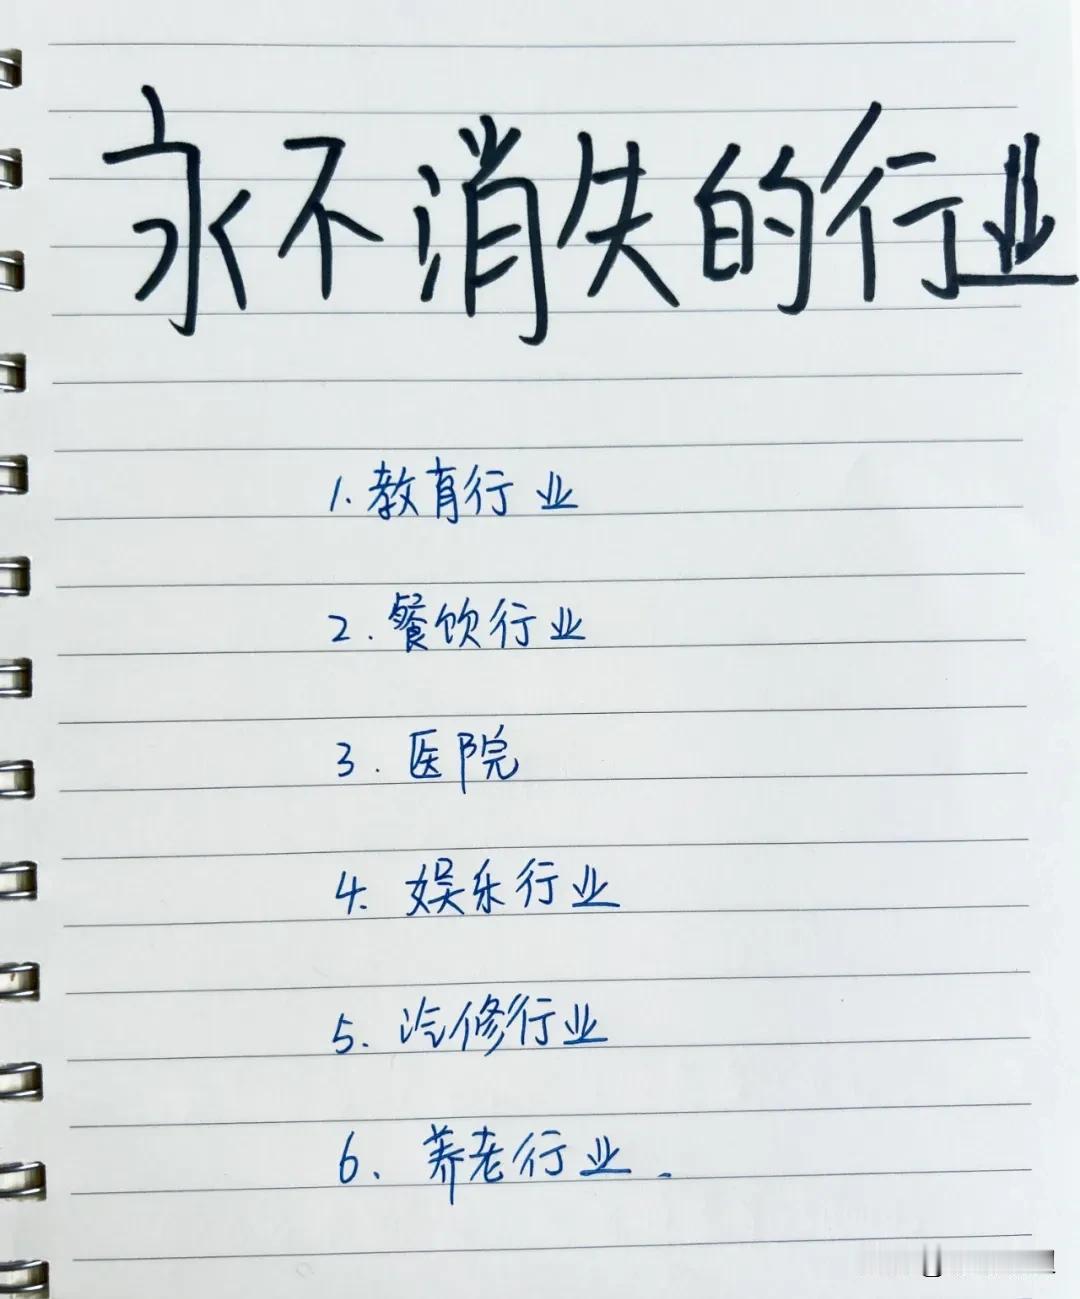 永不消失的行业
1.教育行业
2.餐饮行业
3.医院
4.娱乐行业
5.汽修行业
6.养老行业.